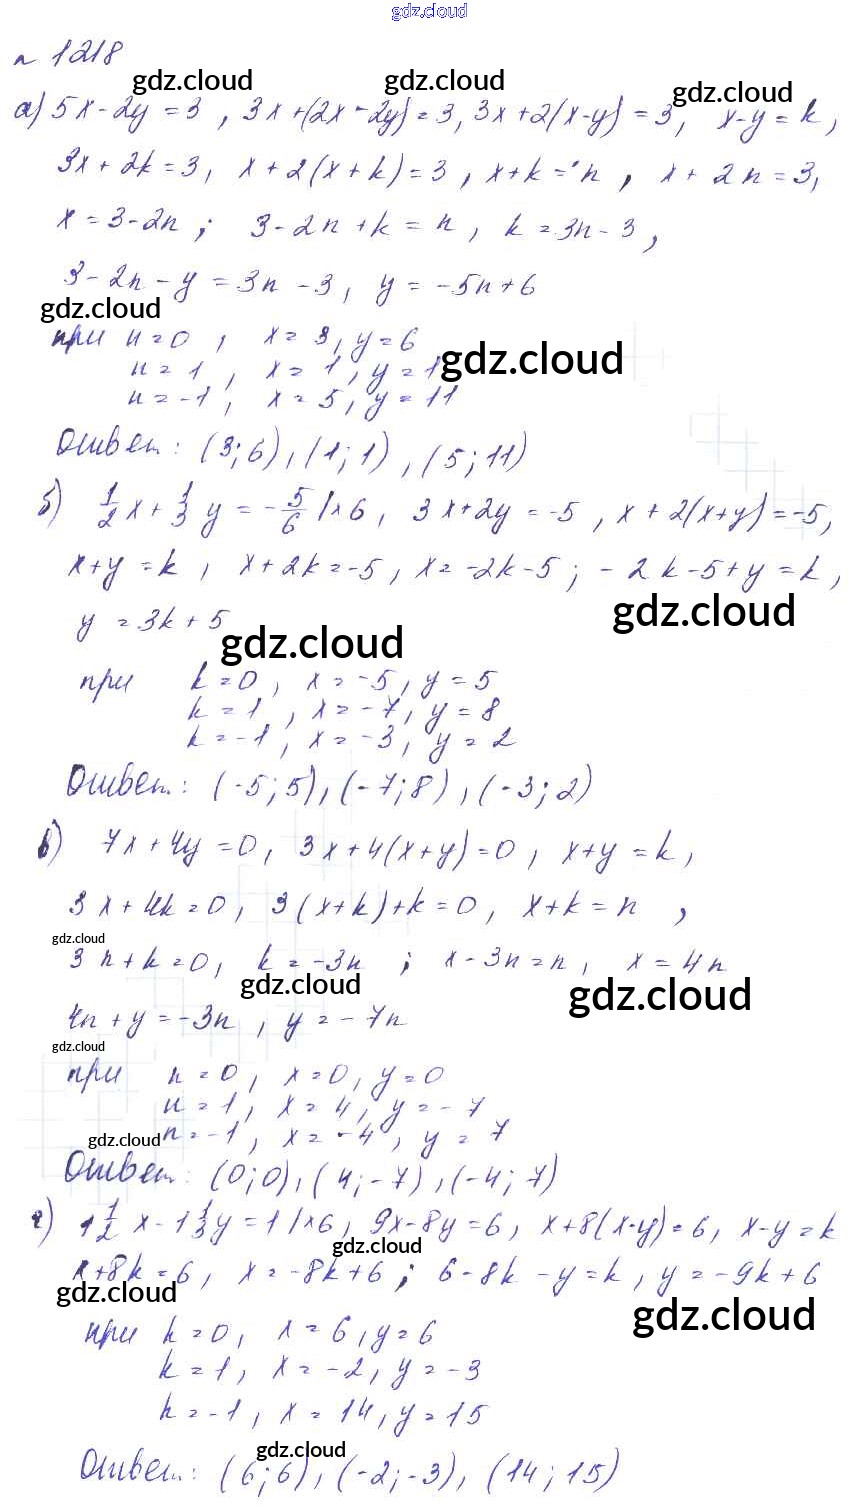 gdz.cloud
№ 1218
gdz.cloud gdz.cloud gdz.cloud
а) 5x-2y=3, 3x+(2x-2y)=3, 3x+2(x-y)=3, x-y=k,
3x+2k=3, x+2(x+k)=3, x+k=n, x+2n=3,
x=3-2n; 3-2n+k=n, k=3n-3,
3-2n-y=3n-3, y=-5n+6
gdz.cloud
при n=0, x=3, y=6
n=1, x=1, y=1
gdz.cloud
n=-1, x=5, y=11
Ответ: (3;6), (1;1), (5;11)
б) 1/2 x + 1/3 y = -5/6 |×6, 3x+2y=-5, x+2(x+y)=-5,
x+y=k, x+2k=-5, x=-2k-5; -2k-5+y=k,
gdz.cloud
y=3k+5
gdz.cloud
при k=0, x=-5, y=5
k=1, x=-7, y=8
k=-1, x=-3, y=2
Ответ: (-5;5), (-7;8), (-3;2)
в) 7x+4y=0, 3x+4(x+y)=0, x+y=k,
3x+4k=0, 3(x+k)+k=0, x+k=n,
gdz.cloud
3n+k=0, k=-3n; x-3n=n, x=4n
gdz.cloud gdz.cloud
4n+y=-3n, y=-7n
gdz.cloud
при n=0, x=0, y=0
n=1, x=4, y=-7
gdz.cloud
n=-1, x=-4, y=7
Ответ: (0;0), (4;-7), (-4;7)
г) 1 1/2 x - 1 1/3 y = 1 |×6, 9x-8y=6, x+8(x-y)=6, x-y=k
gdz.cloud
x+8k=6, x=-8k+6; 6-8k-y=k, y=-9k+6
gdz.cloud gdz.cloud
при k=0, x=6, y=6
k=1, x=-2, y=-3
k=-1, x=14, y=15
gdz.cloud
Ответ: (6;6), (-2;-3), (14;15)